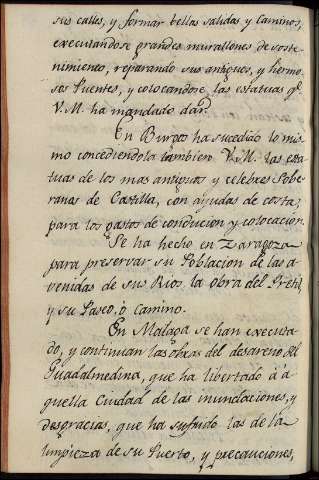 sus calles, y formar bellas salidas y Caminos,
executandose grandes murallones de soste-
nimiento, reparando sus antiguos, y hermo-
sos Puentes, y colocandose las estatuas qe
V.M. ha mandado dar.
En Burgos ha sucedido lo mis-
mo concediendola tambien V.M. las esta-
tuas de los mas antiguos y celebres Sobe-
ranos de Castilla, con ayudas de costa,
para los gastos de conducion y colocacion.
Se ha hecho en Zaragoza
para preservar su Poblacion de las a-
venidas de sus Rios, la obra del Pretil,
y su Paseo, ó camino.
En Malaga se han executa-
do, y continuan las obras del desareno del
Guadalmedina, que ha libertado á a-
quella Ciudad de las inundaciones, y
desgracias, que ha sufrido las de la
limpieza de su Puerto, y precauciones,